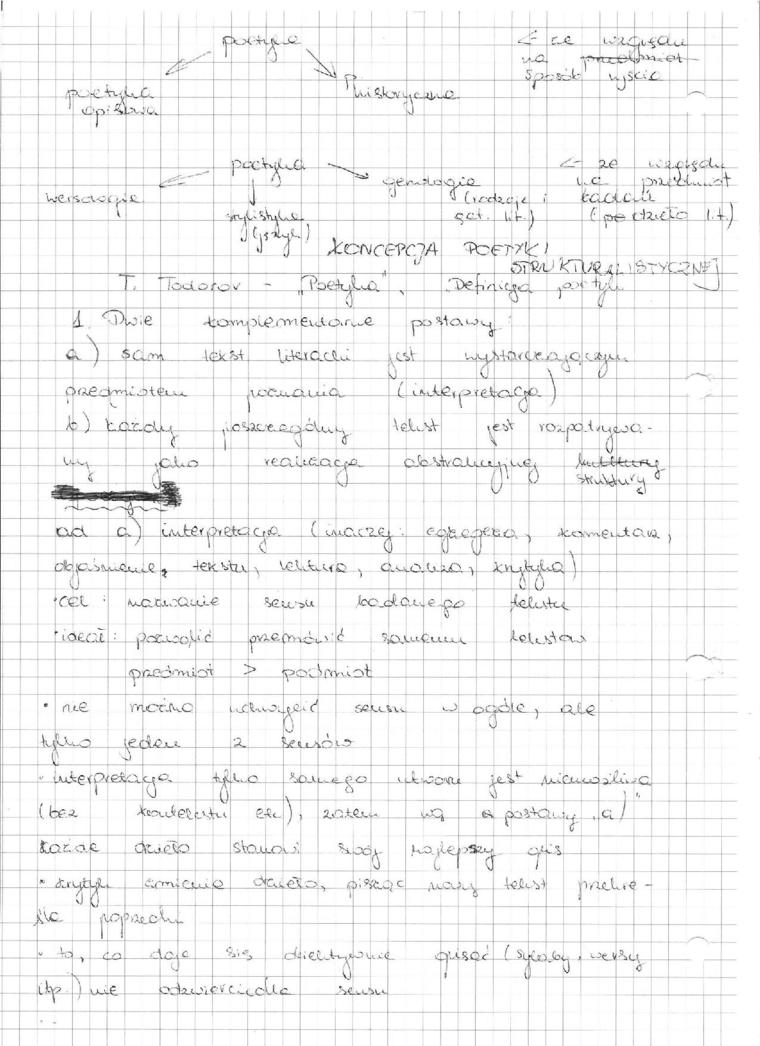 poetyka
← ze względu
na przedmiot
sposób ujścia
poetyka
opisowa
p. historyczna
poetyka
← ze względu
na przedmiot
badań
(dzieło lit.)
wersologia
genologia
(rodzaje i
gat. lit.)
stylistyka
(język)
KONCEPCJA POETYKI
STRUKTURALISTYCZNEJ
T. Todorov - „Poetyka". Definicja poetyki
1. Dwie komplementarne postawy:
a) sam tekst literacki jest wystarczającym
przedmiotem poznania (interpretacja)
b) każdy poszczególny tekst jest rozpatrywa-
ny jako realizacja abstrakcyjnej kultury
struktury
ad a) interpretacja (inaczej: egzegeza, komentarz,
objaśnienie, tekstu, lektura, analiza, krytyka)
• cel: nazwanie sensu badanego tekstu
• ideał: pozwolić przemówić samemu tekstow
przedmiot > podmiot
• nie można uchwycić sensu w ogóle, ale
tylko jeden z sensów
• interpretacja tylko samego utworu jest niemożliwa
(bez kontekstu etc), zatem wg postawy „a)"
każde dzieło stanowi swój najlepszy opis
• krytyk zmienia dzieło, pisząc nowy tekst przekre-
śla poprzedni
• to, co daje się obiektywnie opisać (sylaby, wersy
itp.) nie odzwierciedla sensu